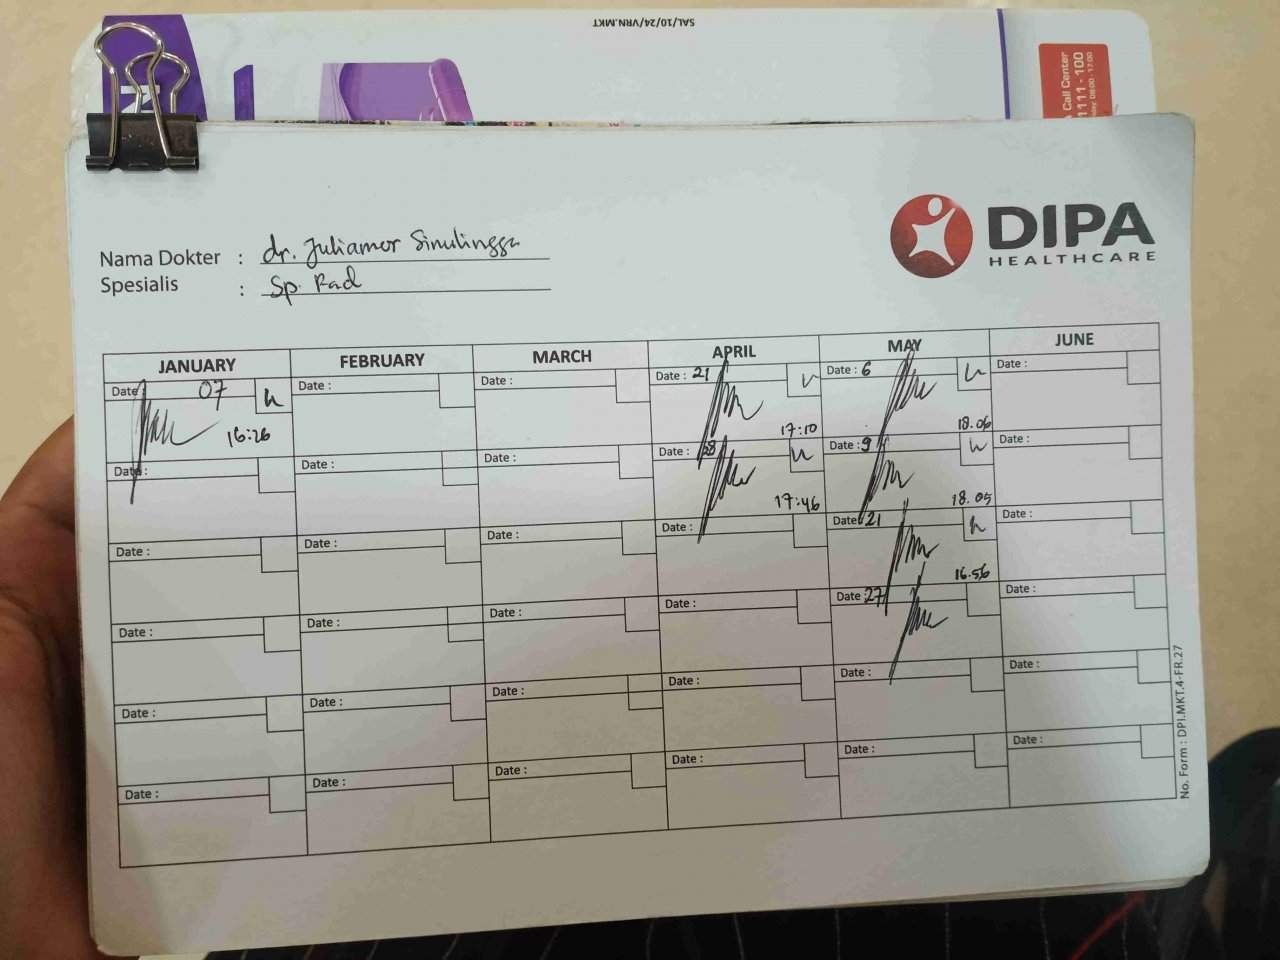 SAL/10/24/VRN.MKT
Call Center
111 - 100
08:00 - 17:00
DIPA
HEALTHCARE
Nama Dokter : dr. Juliamor Sinulingga
Spesialis : Sp. Rad
JANUARY FEBRUARY MARCH APRIL MAY JUNE
Date : 07 Date : Date : Date : 21 Date : 6 Date :
16:26 17:10 18.06
Date : Date : Date : Date : 28 Date : 9 Date :
17:46 18.05
Date : Date : Date : Date : Date : 21 Date :
16.56
Date : Date : Date : Date : Date : 27 Date :
Date : Date : Date : Date : Date : Date :
Date : Date : Date : Date : Date : Date :
No. Form : DPI.MKT.4-FR.27